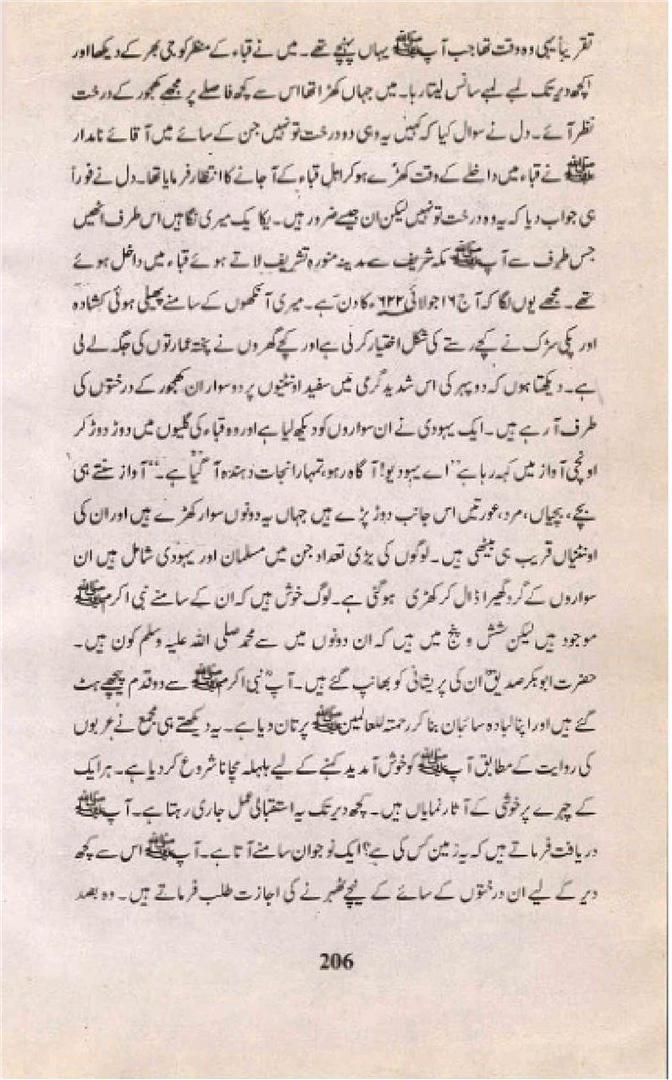 تقریباً یہی وہ وقت تھا جب آپ ﷺ یہاں پہنچے تھے۔ میں نے قباء کے منظر کو جی بھر کے دیکھا اور
کچھ دیر تک لمبے لمبے سانس لیتا رہا۔ میں جہاں کھڑا تھا اس سے کچھ فاصلے پر مجھے کھجور کے درخت
نظر آئے۔ دل نے سوال کیا کہ کہیں یہ وہی دو درخت تو نہیں جن کے سائے میں آقائے نامدار
ﷺ نے قباء میں داخلے کے وقت کھڑے ہو کر اہل قباء کے آ جانے کا انتظار فرمایا تھا۔ دل نے فوراً
ہی جواب دیا کہ یہ وہ درخت تو نہیں لیکن ان جیسے ضرور ہیں۔ یکایک میری نگاہیں اس طرف اٹھیں
جس طرف سے آپ ﷺ مکہ شریف سے مدینہ منورہ تشریف لاتے ہوئے قباء میں داخل ہوئے
تھے۔ مجھے یوں لگا کہ آج ۱۶ جولائی ۶۲۲ء کا دن ہے۔ میری آنکھوں کے سامنے پھیلی ہوئی کشادہ
اور پکی سڑک نے کچے رستے کی شکل اختیار کر لی ہے اور کچے گھروں نے پختہ عمارتوں کی جگہ لے لی
ہے۔ دیکھتا ہوں کہ دوپہر کی اس شدید گرمی میں سفید اونٹنیوں پر دو سوار ان کھجور کے درختوں کی
طرف آ رہے ہیں۔ ایک یہودی نے ان سواروں کو دیکھ لیا ہے اور وہ قباء کی گلیوں میں دوڑ دوڑ کر
اونچی آواز میں کہہ رہا ہے ”اے یہودیو! آگاہ رہو، تمہارا نجات دہندہ آ گیا ہے۔“ آواز سنتے ہی
بچے، بچیاں، مرد، عورتیں اس جانب دوڑ پڑے ہیں جہاں یہ دونوں سوار کھڑے ہیں اور ان کی
اونٹنیاں قریب ہی بیٹھی ہیں۔ لوگوں کی بڑی تعداد جن میں مسلمان اور یہودی شامل ہیں ان
سواروں کے گرد گھیرا ڈال کر کھڑی ہو گئی ہے۔ لوگ خوش ہیں کہ ان کے سامنے نبی اکرم ﷺ
موجود ہیں لیکن شش و پنج میں ہیں کہ ان دونوں میں سے محمد صلی اللہ علیہ وسلم کون ہیں۔
حضرت ابوبکر صدیقؓ ان کی پریشانی کو بھانپ گئے ہیں۔ آپؓ نبی اکرم ﷺ سے دو قدم پیچھے ہٹ
گئے ہیں اور اپنا لبادہ سائبان بنا کر رحمتہ للعالمین ﷺ پر تان دیا ہے۔ یہ دیکھتے ہی مجمع نے عربوں
کی روایت کے مطابق آپ ﷺ کو خوش آمدید کہنے کے لیے ہلہلہ مچانا شروع کر دیا ہے۔ ہر ایک
کے چہرے پر خوشی کے آثار نمایاں ہیں۔ کچھ دیر تک یہ استقبالی عمل جاری رہتا ہے۔ آپ ﷺ
دریافت فرماتے ہیں کہ یہ زمین کس کی ہے؟ ایک نوجوان سامنے آتا ہے۔ آپ ﷺ اس سے کچھ
دیر کے لیے ان درختوں کے سائے کے نیچے ٹھہرنے کی اجازت طلب فرماتے ہیں۔ وہ بصد
206